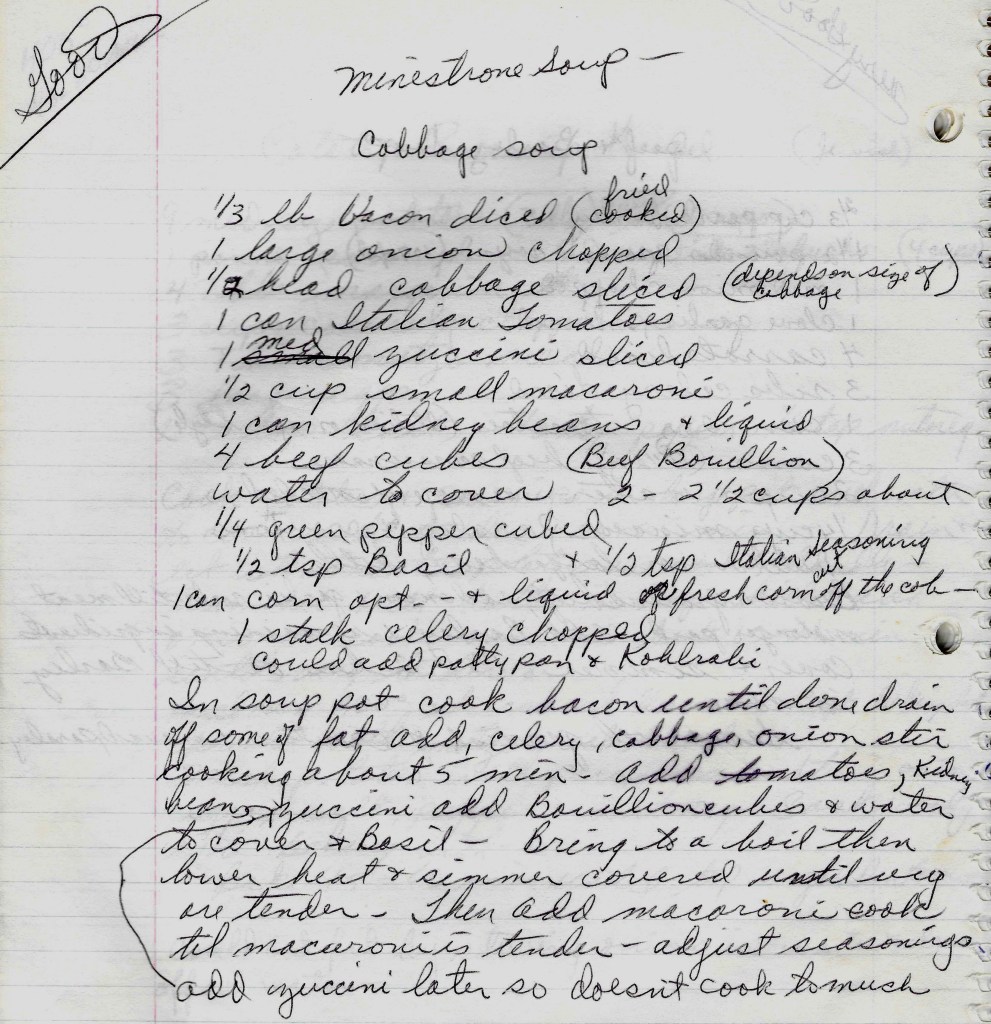 Good
Minestrone Soup -
Cabbage soup
1/3 lb bacon diced (fried cooked)
1 large onion chopped
1/2 head cabbage sliced (depends on size of cabbage)
1 can Italian Tomatoes
1 med zuccini sliced
1/2 cup small macaroni
1 can kidney beans + liquid
4 beef cubes (Beef Bouillion)
water to cover 2 - 2 1/2 cups about
1/4 green pepper cubed
1/2 tsp Basil + 1/2 tsp Italian Seasoning
1 can corn opt. - - + liquid or fresh corn cut off the cob -
1 stalk celery chopped
could add patty pan & Kohlrabi
In soup pot cook bacon until done drain
off some of fat add, celery, cabbage, onion stir
cooking about 5 min - add tomatoes, Kidney
beans, zuccini add Bouillion cubes & water
to cover + Basil - Bring to a boil then
lower heat & simmer covered until veg
are tender - Then add macaroni cook
til macuroni is tender - adjust seasonings
add zuccini later so doesnt cook to much